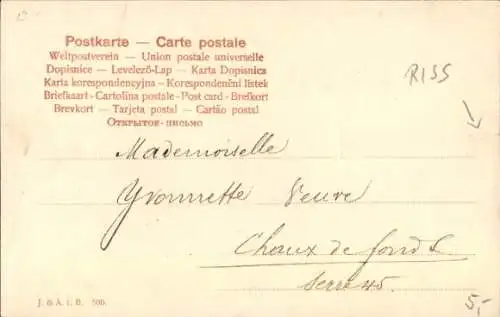 Postkarte — Carte postale
Weltpostverein — Union postale universelle
Dopisnice — Levelező-Lap — Karta Dopisnica
Karta korespondencyjna - Korespondenční lístek
Briefkaart - Cartolina postale - Post card - Brefkort
Brevkort — Tarjeta postal — Cartão postal
Открытое-письмо
RISS
Mademoiselle
Yvonnette Veuve
Chaux de fonds
Serre 45.
J. & A. i. B. 500.
5,-